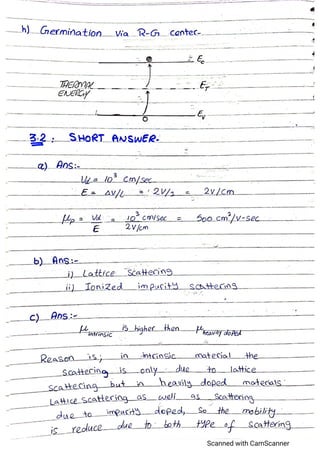 h) Germination via R-G center-
Ec
THERMAL
ENERGY
ET
Ev
3.2 : SHORT ANSWER-
a) Ans:-
Vd = 10³ cm/sec
E = ΔV/L = 2V/1 = 2V/cm
μp = Vd/E = 10³ cm/sec / 2V/cm = 500 cm²/V-sec
b) Ans:-
i) Lattice Scattering
ii) Ionized impurity scattering
c) Ans:-
μintrinsic is higher then μheavily doped
Reason is, in intrinsic material the
scattering is only due to lattice
scattering but in heavily doped materials
Lattice scattering as well as scattering
due to impurity doped, So the mobility
is reduce due to both type of scattering
Scanned with CamScanner